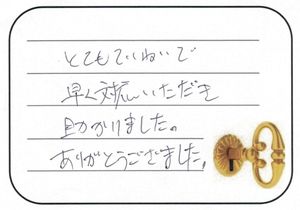 とてもていねいで
早く対応いただき
助かりました。
ありがとうございました。